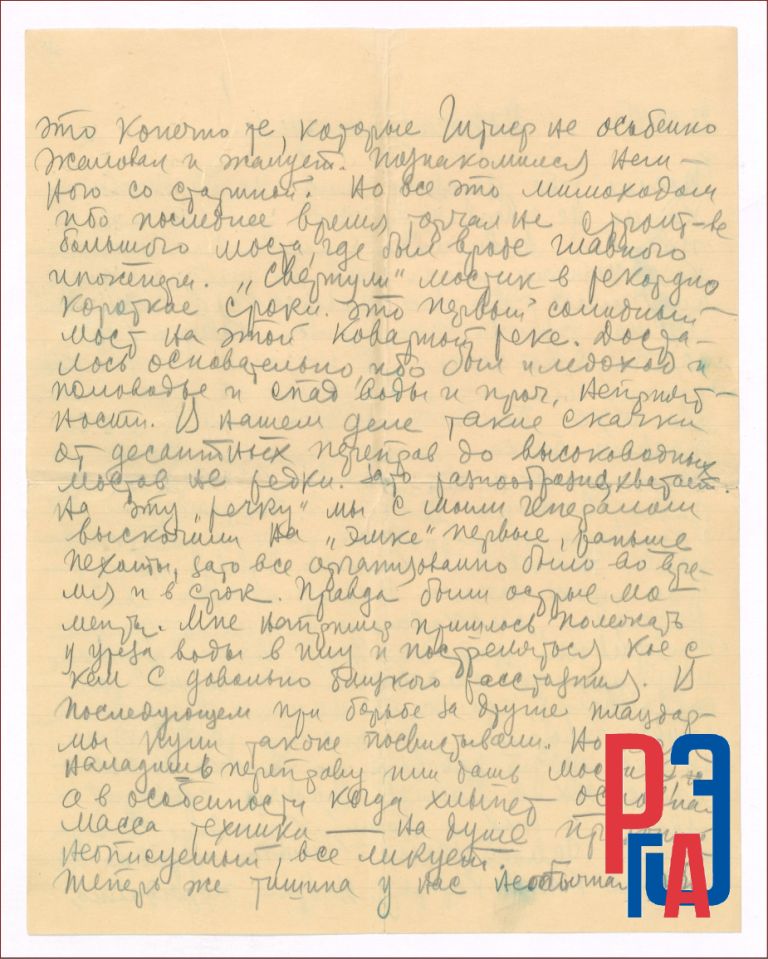 это конечно те, которые Гитлер не особенно
жаловал и жалует. Познакомился нем-
ного со стариной. Но все это мимоходом
ибо последнее время торчал на строит-ве
большого моста, где был вроде главного
инженера. „Свернули“ мостик в рекордно
короткие сроки. Это первый солидный
мост на этой коварной реке. Доста-
лось основательно, ибо был и ледоход и
половодье и спад воды и проч. неприят-
ности. В нашем деле такие скачки
от десантных переправ до высоководных
мостов не редки. Зато разнообразия хватает.
На эту „речку“ мы с моим генералом
выскочили на „эмке“ первые, раньше
пехоты, зато все организованно было во вре-
мя и в срок. Правда были острые мо-
менты. Мне например пришлось полежать
у уреза воды в илу и постреляться кое с
кем с довольно близкого расстояния. В
последующем при борьбе за другие плацдар-
мы пули также посвистывали. Но
наладишь переправу или дашь мост
а в особенности когда хлынет основная
масса техники — на душе
неописуемый, все ликует.
Теперь же тишина у нас необычная
РГАЭ